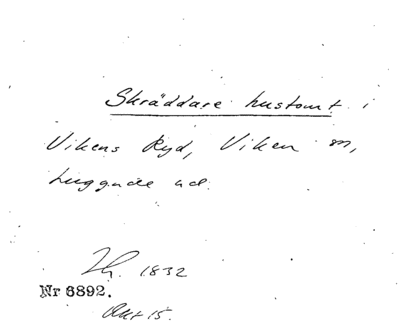 Skräddare hustomt i
Vikens Ryd, Viken m,
huggade ad.
Th. 1832
Nr 6892.
Akt 15.